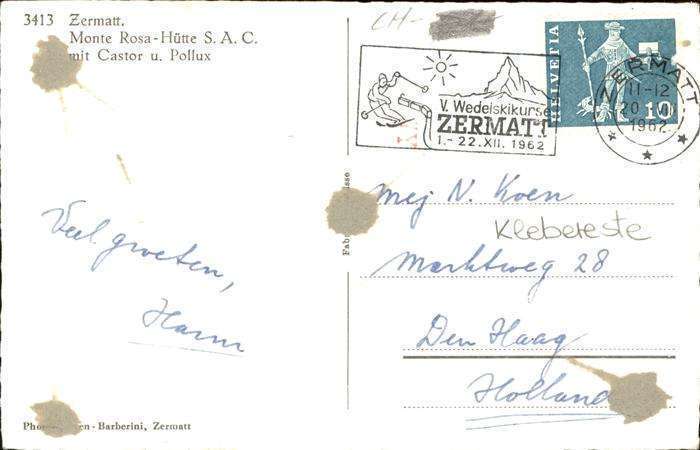 3413 Zermatt.
Monte Rosa-Hütte S. A. C.
mit Castor u. Pollux
CH-
V. Wedelskikurse
ZERMATT
1. - 22. XII. 1962
HELVETIA
10
ZERMATT
11-12
20
1962
Veel groeten,
Harm
Mej N. Koen
Klebereste
Marktweg 28
Den Haag
Holland
Barberini, Zermatt